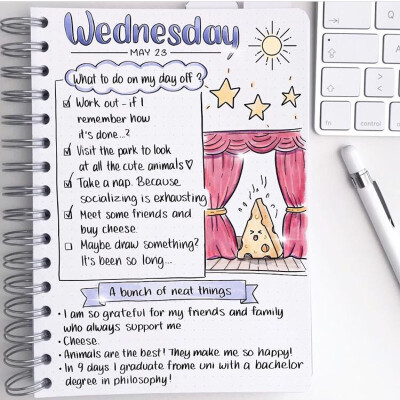 Wednesday
MAY 23
What to do on my day off?
Work out - if I
remember how
it's done...?
Visit the park to look
at all the cute animals♡
Take a nap. Because
socializing is exhausting
Meet some friends and
buy cheese.
Maybe draw something?
It's been so long...
A bunch of neat things
• I am so grateful for my friends and family
who always support me
• Cheese.
• Animals are the best! They make me so happy!
• In 9 days I graduate frome uni with a bachelor
degree in philosophy!
fn
control